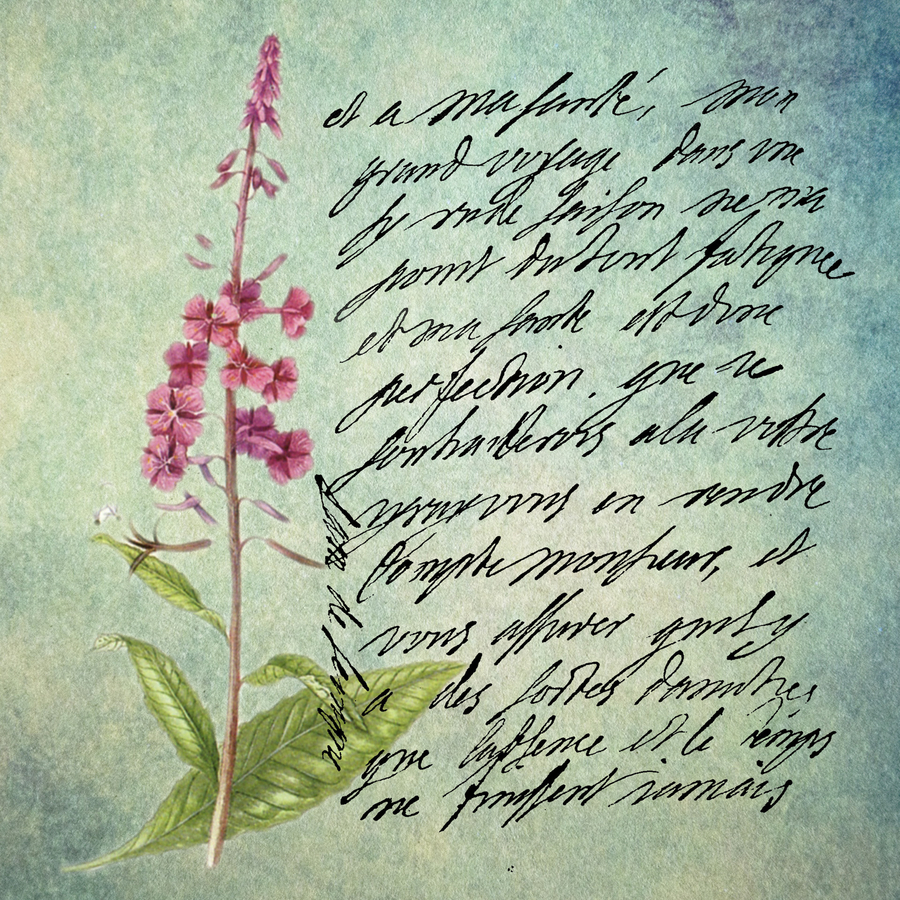 et a ma santé, mon
grand voyage dans une
sy rude saison ne m'a
point du tout fatiguee
et ma santé est dune
perfection, que je
souhaiterois a la votre
en rendre
Compte monsieur, et
vous assurer quil y
a des sortes damities
que labsence et le temps
ne finissent jamais